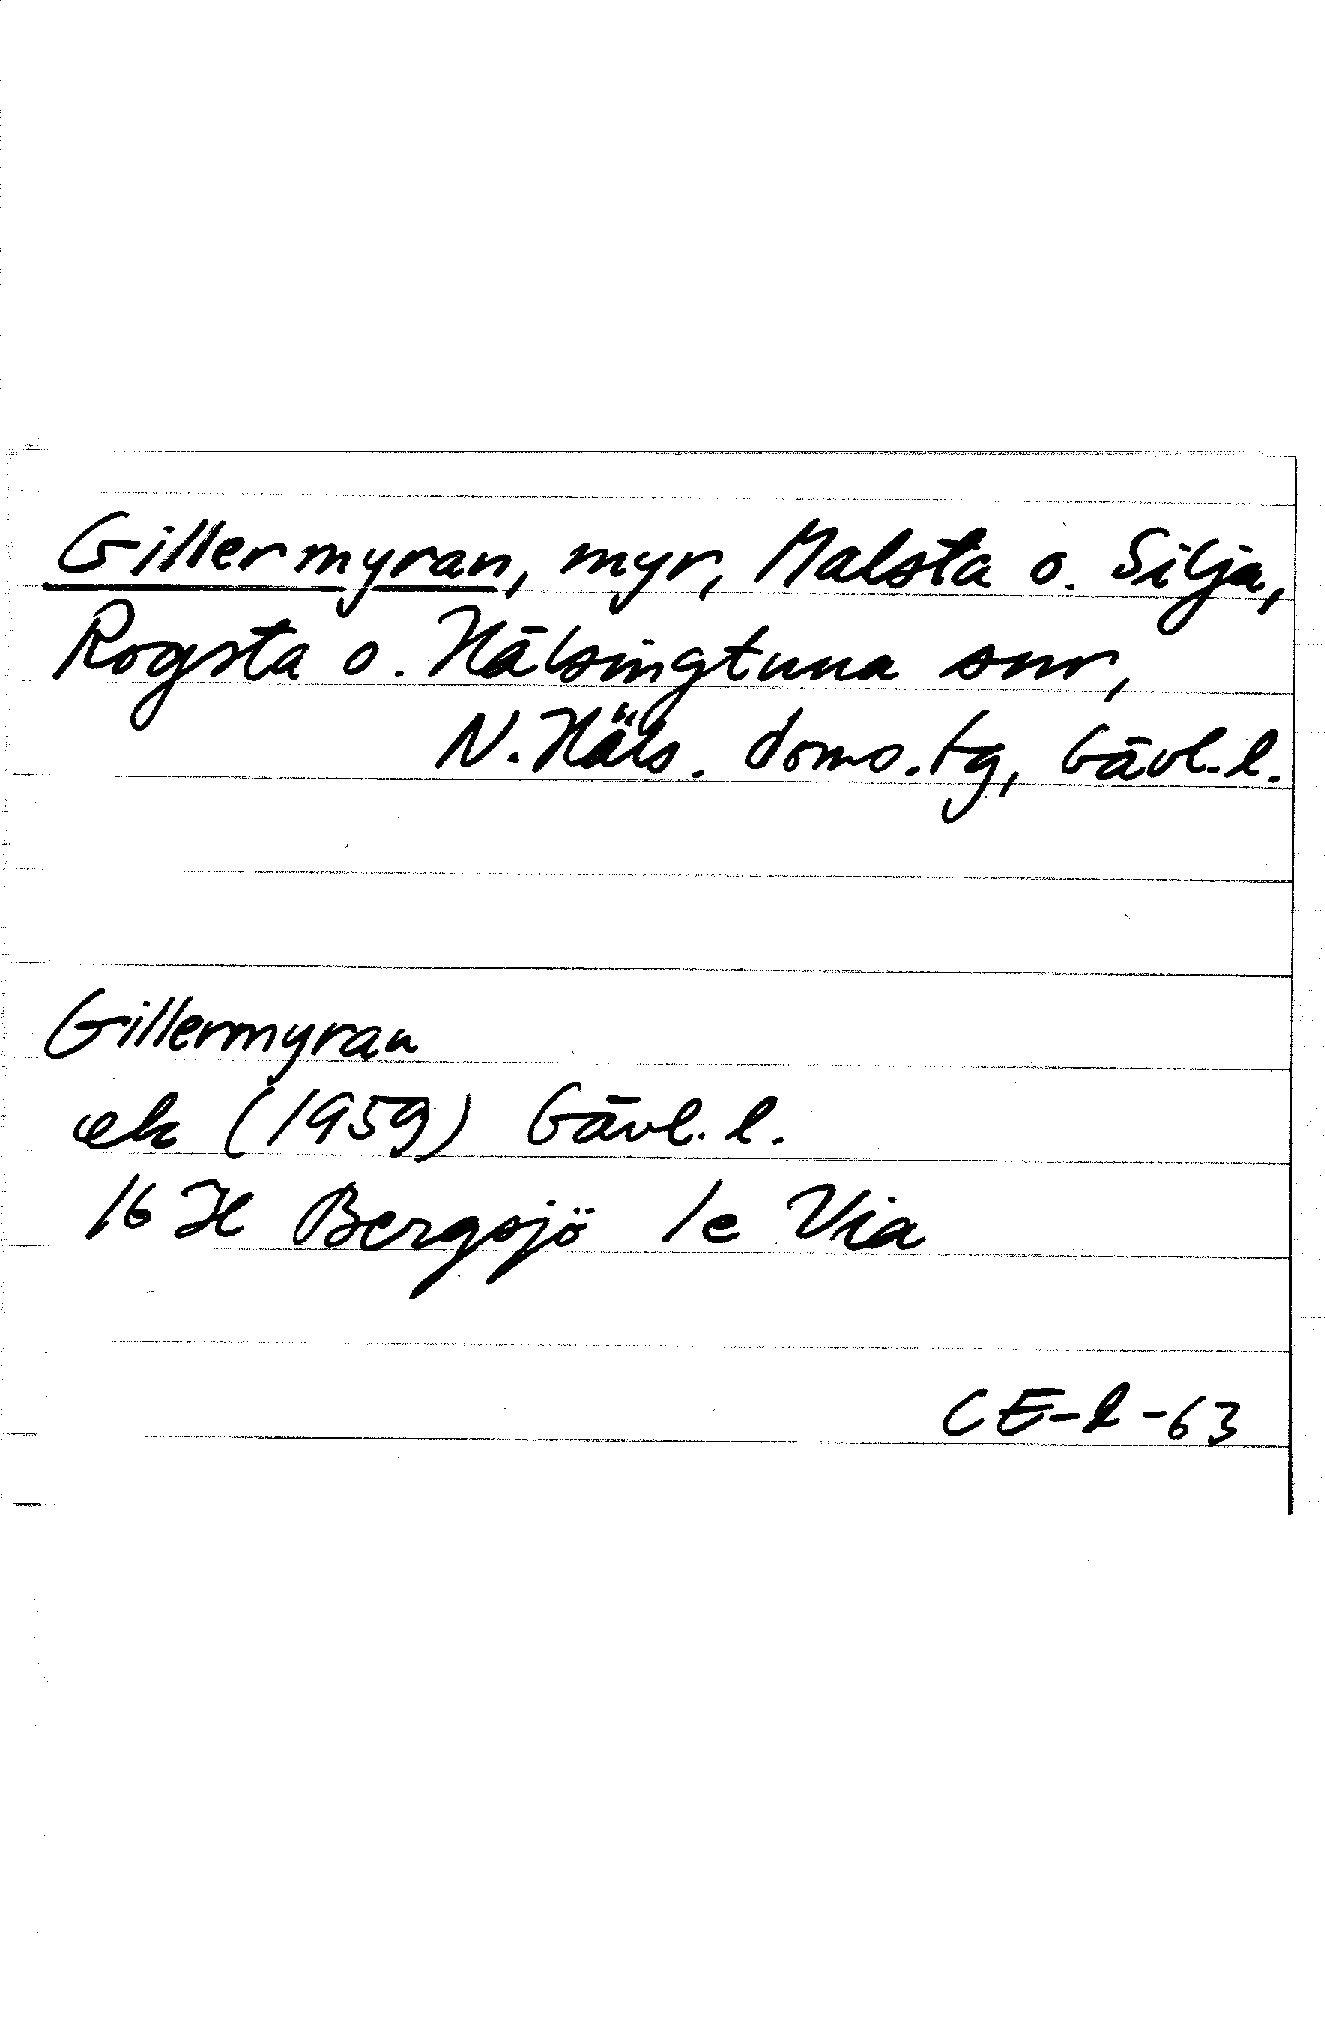 Gillermyran, myr, Malsta o. Silja,
Rogsta o. Hälsingtuna snr,
N. Häls. doms.tg, Gävl.l.
Gillermyran
ek (1959) Gävl. l.
16 H Bergsjö 1e Via
CE-l-63